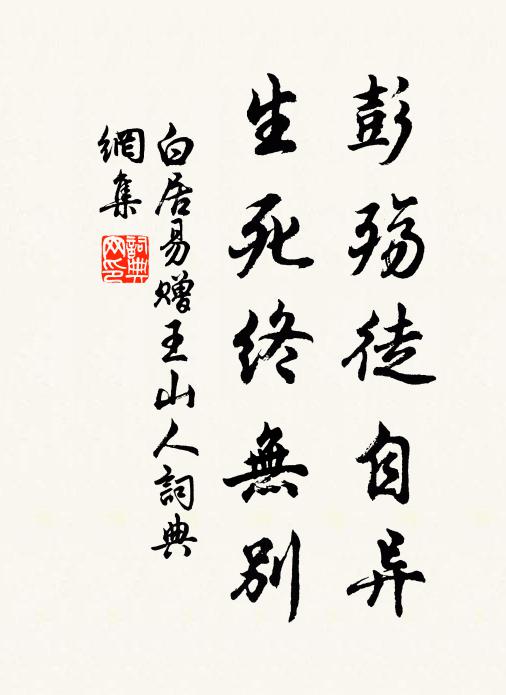 彭殤徒自异
生死終無別
白居易赠王山人詞典
網集
詞典网印